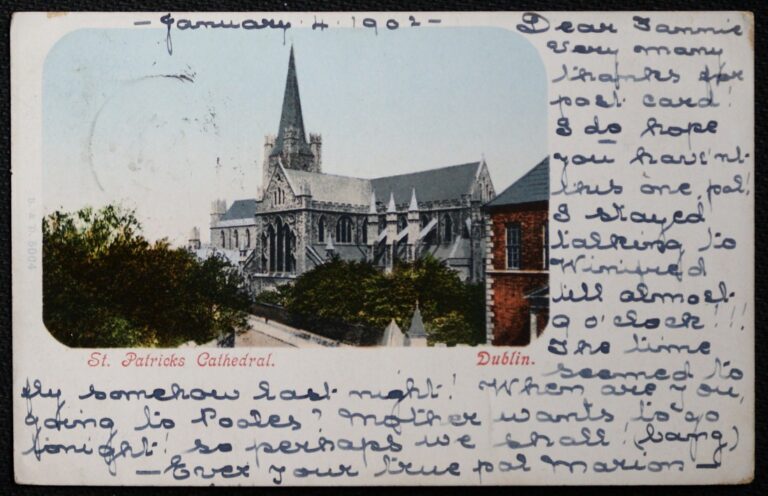 - January 4 1902 -
Dear Tammie
Very many
thanks for
post card!
I do hope
you hav'nt
this one, pal!
I stayed
talking to
Winifred
till almost
9 o'clock!!!
The time
seemed to
fly somehow last night! When are you
going to Pooles? Mother wants to go
tonight! so perhaps we shall! (bang)
- Ever your true pal Marion -
St. Patricks Cathedral.
Dublin.
B & D. 5004